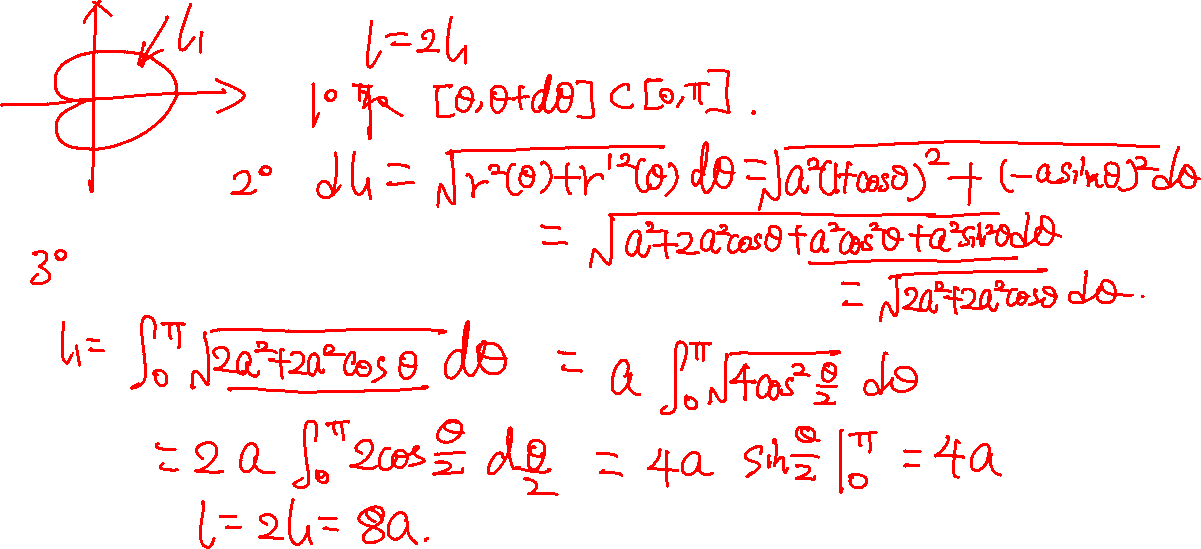 l₁
l=2l₁
1° 取 [θ,θ+dθ]⊂[0,π].
2° dl₁=√(r²(θ)+r'²(θ)) dθ=√(a²(1+cosθ)²+(-asinθ)²)dθ
=√(a²+2a²cosθ+a²cos²θ+a²sin²θ)dθ
=√(2a²+2a²cosθ) dθ.
3°
l₁=∫₀^π √(2a²+2a²cosθ) dθ = a∫₀^π √(4cos²(θ/2)) dθ
=2a∫₀^π 2cos(θ/2) d(θ/2) = 4a sin(θ/2)|₀^π =4a
l=2l₁=8a.